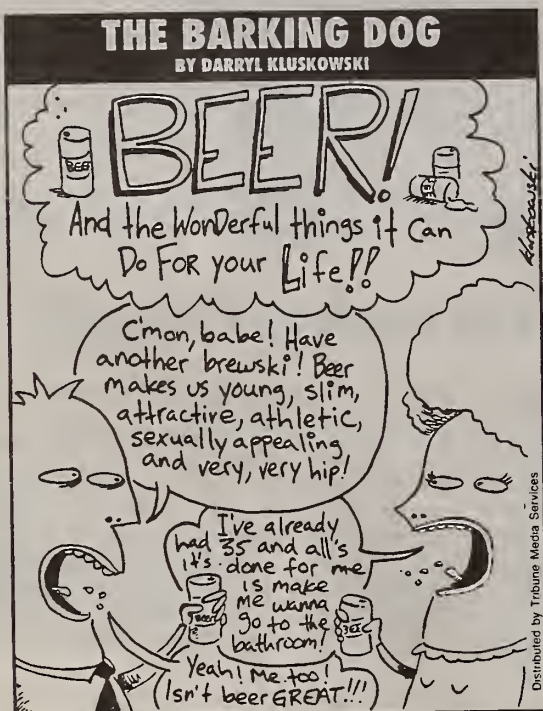 THE BARKING DOG
BY DARRYL KLUSKOWSKI
BEER!
BEER
BE
And the WonDerful things it Can
Do FOR your Life!!
Kluskowski
C'mon, babe! Have
another brewski! Beer
makes us young, slim,
attractive, athletic,
sexually appealing
and very, very hip!
I've already
had 35 and all's
it's done for me
is make
me wanna
go to the
bathroom!
BEER
BEE
Yeah! Me too!
Isn't beer GREAT!!!
Distributed by Tribune Media Services